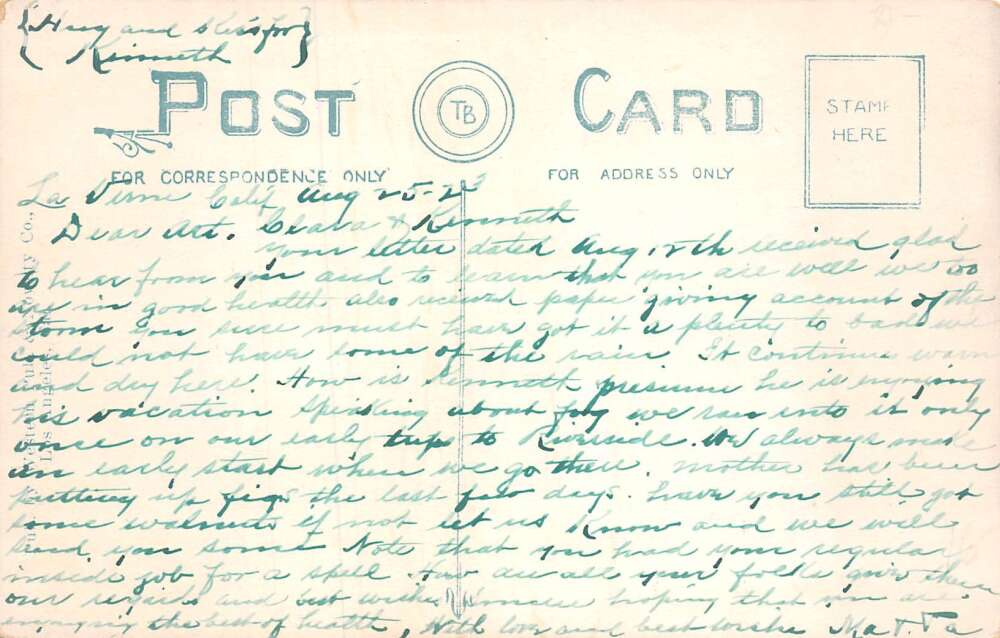 {Hug and kiss for}
Kenneth
POST CARD
TB
STAMP
HERE
FOR CORRESPONDENCE ONLY
FOR ADDRESS ONLY
La Verne Calif Aug 25-23
Dear Art, Clara & Kenneth
your letter dated Aug, 12th received glad
to hear from you and to learn that you are well we too
are in good health also received paper giving account of the
storm you sure must have got it a plenty to bad we
could not have some of the rain. It continues warm
and dry here. How is Kenneth presume he is enjoying
his vacation Speaking about fog we ran into it only
once on our early trip to Riverside. We always make
an early start when we go there. Mother has been
putting up figs the last few days. have you still got
some walnuts if not let us know and we will
send you some Note that you had your regular
inside job for a spell. How are all your folks give them
our regards and best wishes hoping that you are
enjoying the best of health, With love and best wishes Ma & Pa
Pub. by Western Pub. & Novelty Co.,
Los Angeles,